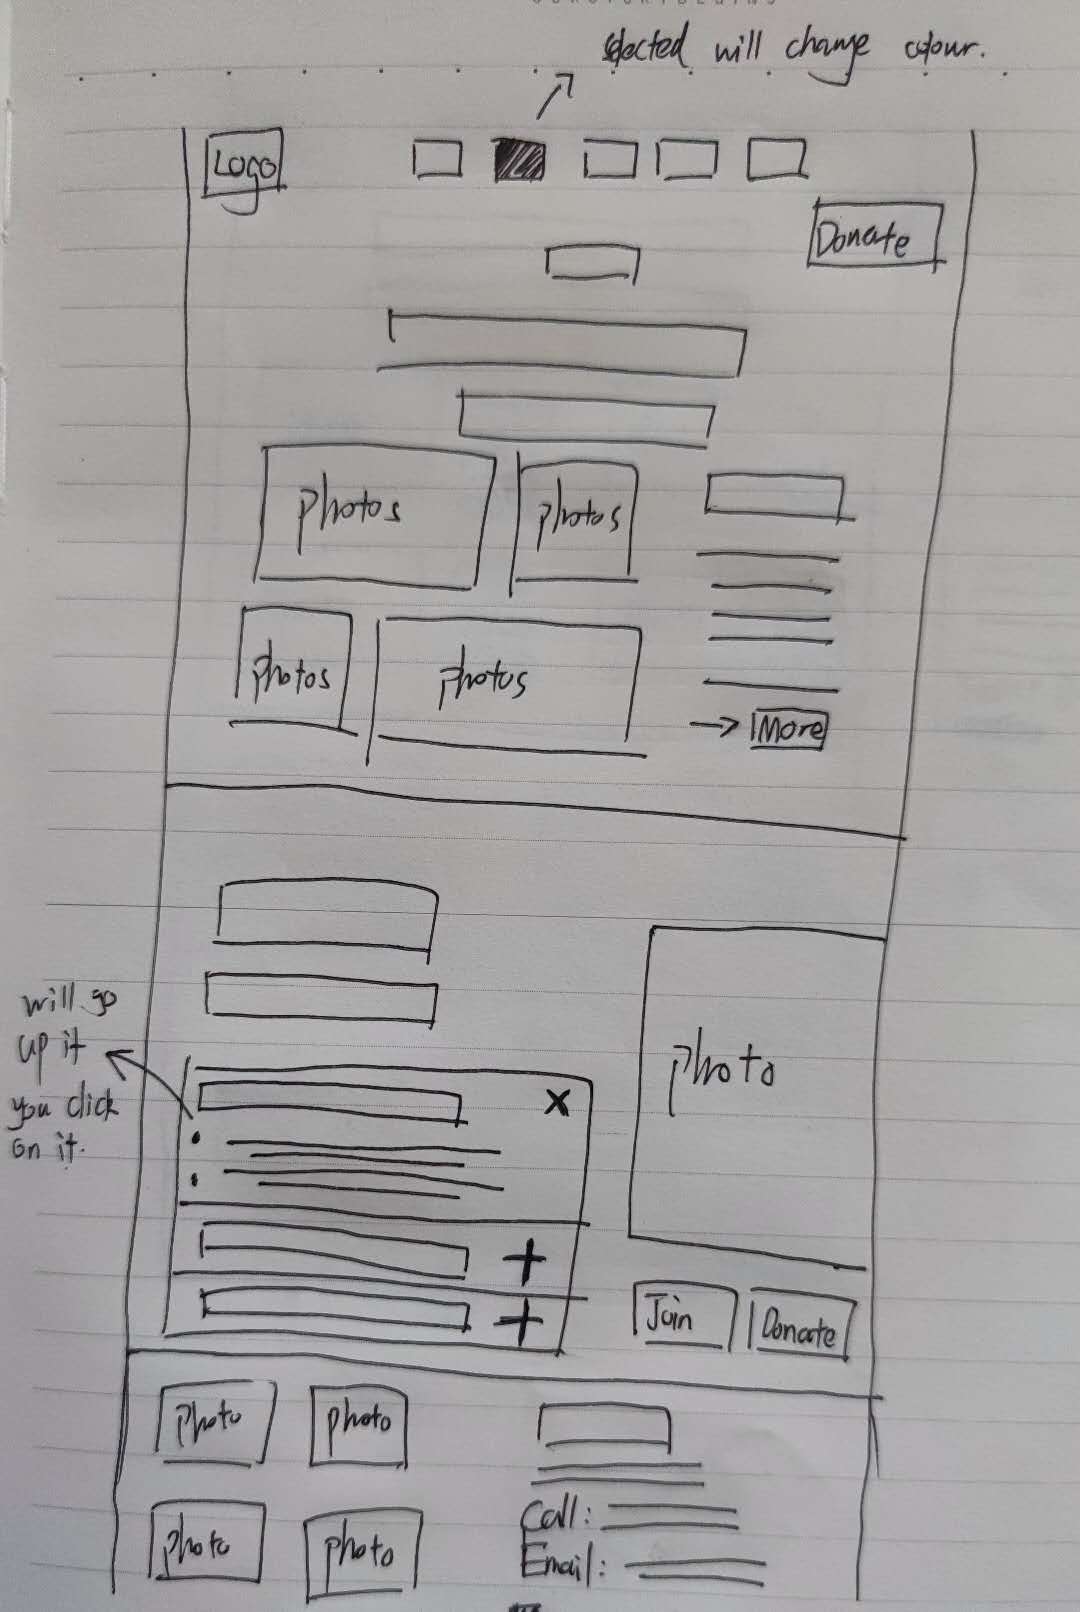 selected will change colour.
Logo
Donate
photos
photos
photos
photos
→ More
will go
up it
you click
on it.
X
photo
+
+
Join
Donate
photo
photo
Call:
photo
photo
Email: